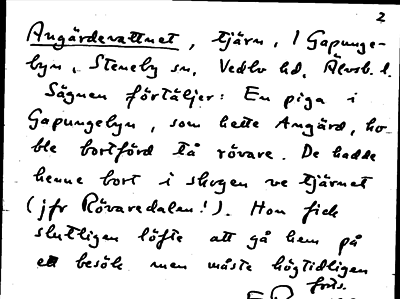 2
Angärdsvattnet, tjärn, i Gapunge-
byn, Steneby sn, Vedbo hd, Älvsb. l.
Sägnen förtäljer: En piga i
Gapungebyn, som hette Angärd, ho-
ble bortförd tå rövare. De hadde
henne bort i skogen ve tjärnet
(jfr Rövaredalen!). Hon fick
slutligen löfte att gå hem på
ett besök men måste högtidligen
forts.